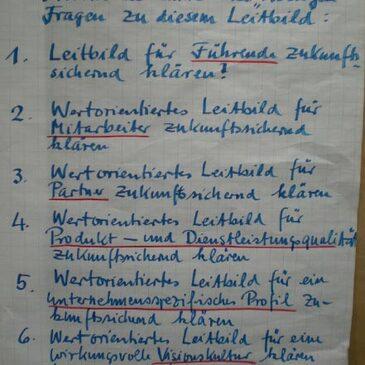 Fragen zu diesem Leitbild:
1. Leitbild für Führende zukunfts-
sichernd klären!
2. Wertorientiertes Leitbild für
Mitarbeiter zukunftssichernd
klären
3 Wertorientiertes Leitbild für
Partner zukunftssichernd klären
4. Wertorientiertes Leitbild für
Produkt- und Dienstleistungsqualität
zukunftssichernd klären
5. Wertorientiertes Leitbild für ein
unternehmensspezifisches Profil zu-
kunftssichend klären
6. Wertorientiertes Leitbild für eine
wirkungsvolle Visionskultur klären